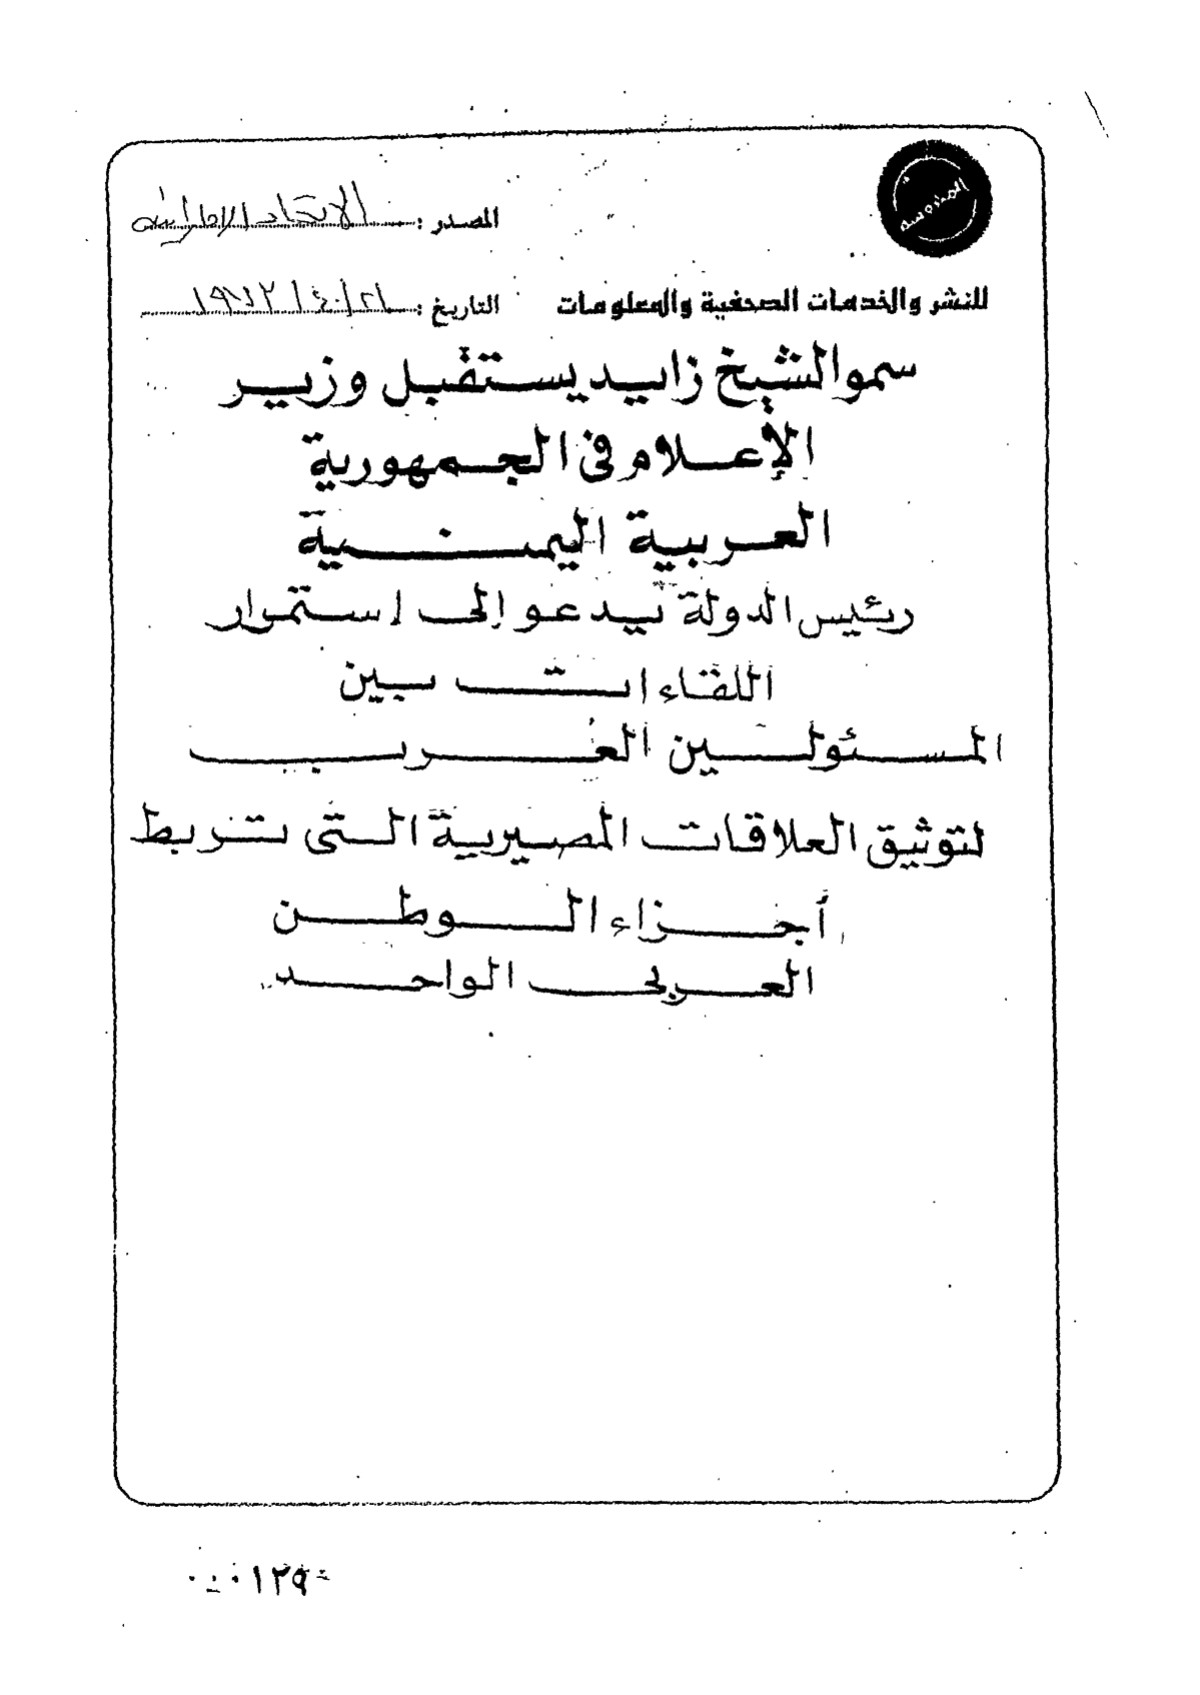 المحروسة
المصدر : الاتحاد الإماراتية
للنشر والخدمات الصحفية والمعلومات
التاريخ : ٢١/٤٠/١٩٧٢
سمو الشيخ زايد يستقبل وزير
الإعلام فى الجمهورية
العربية اليمنية
رئيس الدولة يدعو إلى إستمرار
اللقاءات بين
المسئولين العرب
لتوثيق العلاقات المصيرية التى تربط
أجزاء الوطن
العربى الواحد
١٢٩